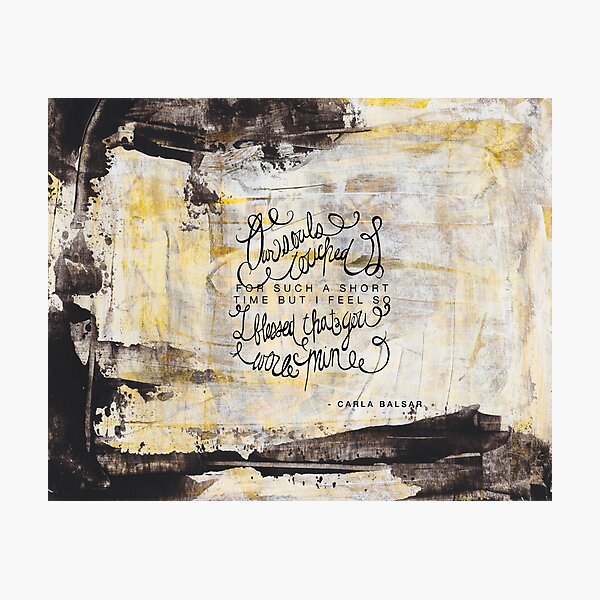 Our souls
touched
FOR SUCH A SHORT
TIME BUT I FEEL SO
blessed that you
were mine
- CARLA BALSAR